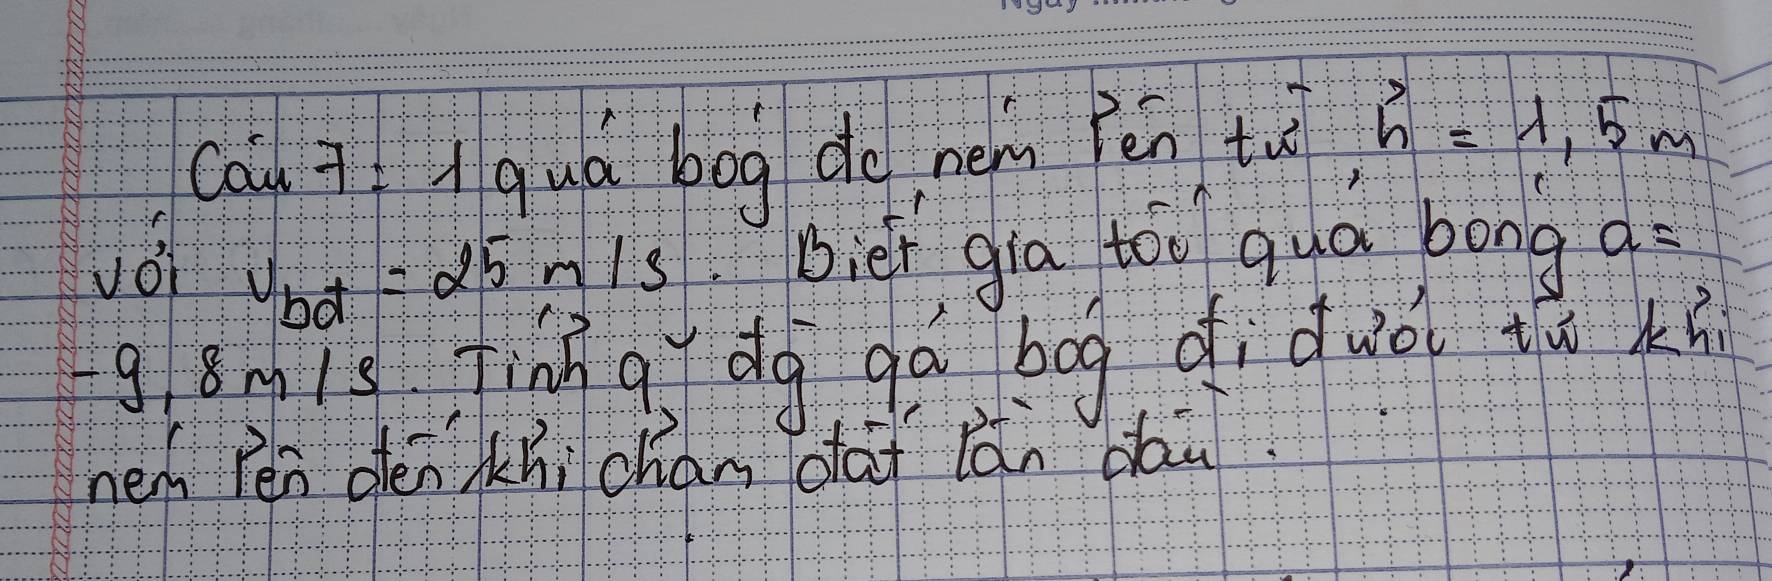 Câu 7: 1 quả bóg đc ném lên từ h = 1,5 m
với v bđ = 25 m/s. Biết gia tốc quả bóng a =
-9,8 m/s. Tính qy đg qả bóg đi được từ khi
ném lên đến khi chạm đất lần đầu.